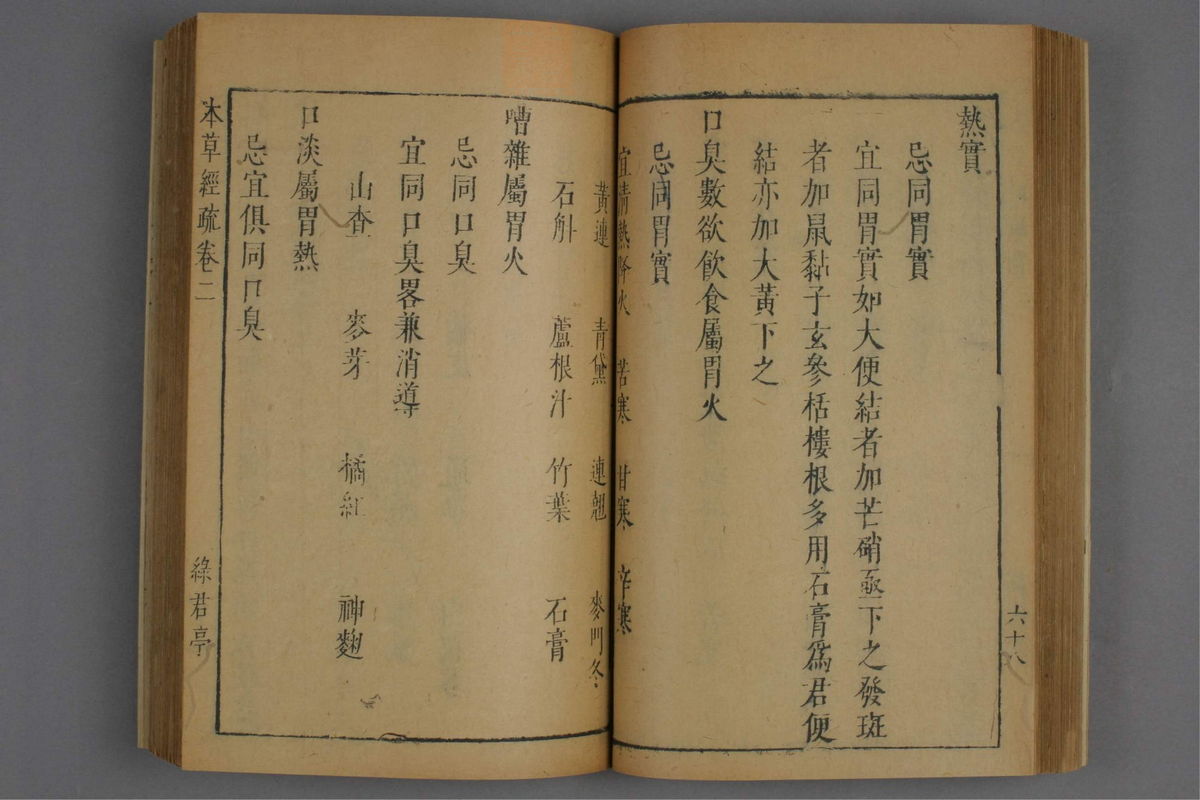 熱實
忌同胃實
宜同胃實如大便結者加芒硝亟下之發斑
者加鼠黏子玄參栝樓根多用石膏爲君便
結亦加大黃下之
口臭數欲飲食屬胃火
忌同胃實
宜清熱降火 苦寒 甘寒 辛寒
六十八
黃連 青黛 連翹 麥門冬
石斛 蘆根汁 竹葉 石膏
嘈雜屬胃火
忌同口臭
宜同口臭畧兼消導
山查 麥芽 橘紅 神麴
口淡屬胃熱
忌宜俱同口臭
本草經疏卷二 綠君亭